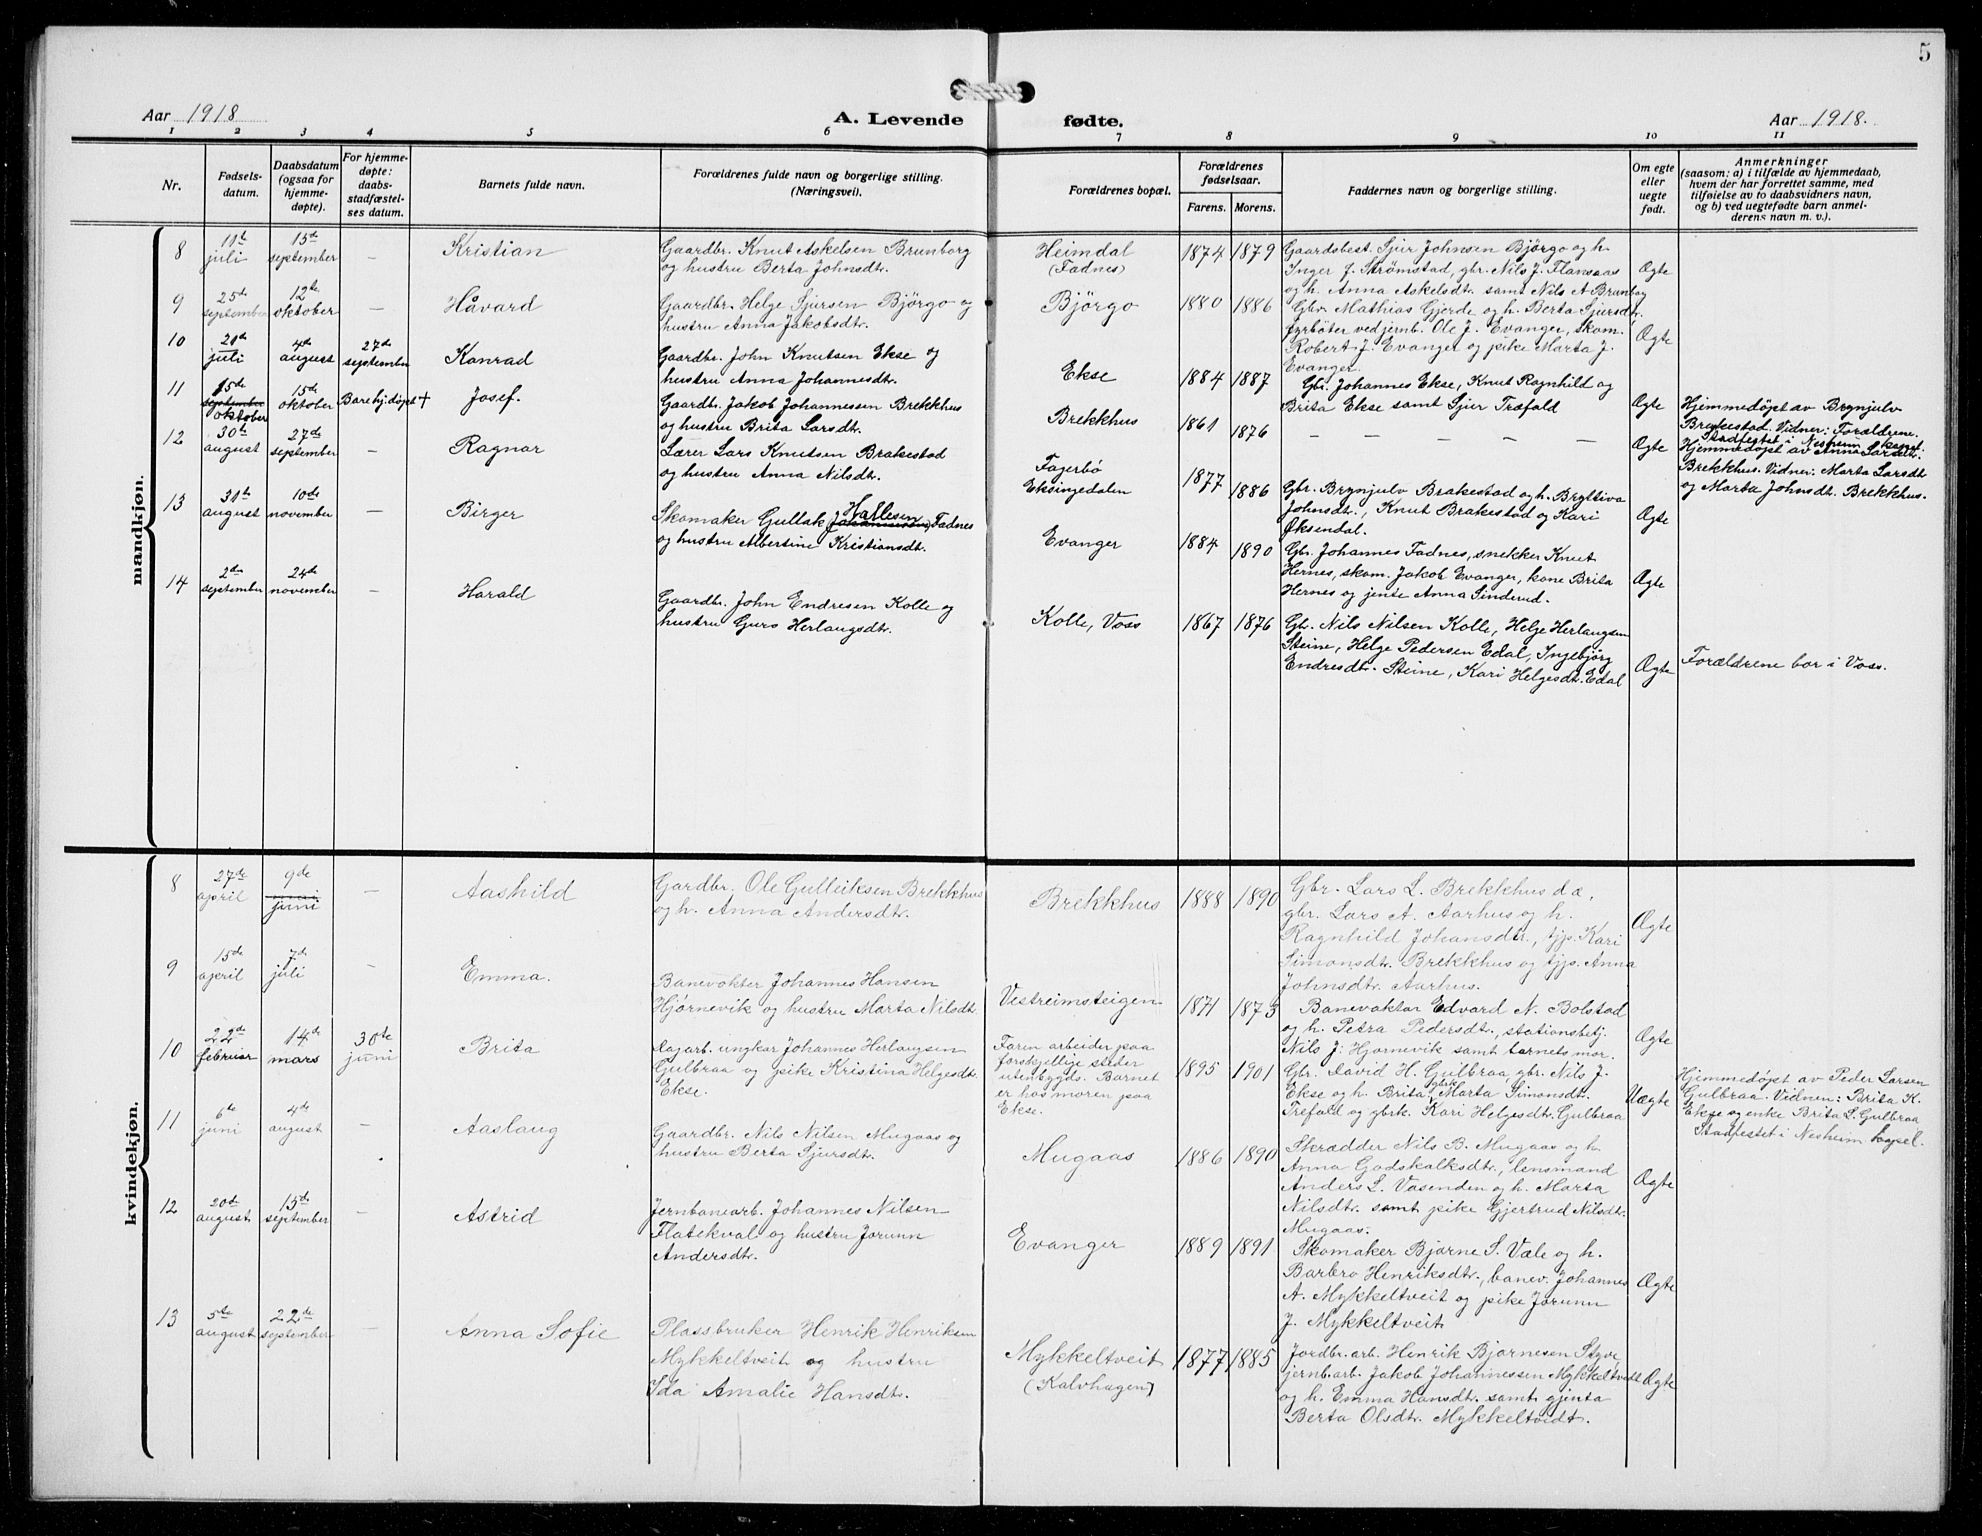 5
Aar 1918
A. Levende fødte.
Aar 1918.
1 2 3 4 5 6 7 8 9 10 11
Nr.
Fødsels-
datum.
Daabsdatum
(ogsaa for
hjemme-
døpte).
For hjemme-
døpte:
daabs-
stadfæstel-
ses datum.
Barnets fulde navn.
Forældrenes fulde navn og borgerlige stilling.
(Næringsvei).
Forældrenes bopæl.
Forældrenes
fødselsaar.
Farens. Morens.
Faddernes navn og borgerlige stilling.
Om egte
eller
uegte
født.
Anmerkninger
(saasom: a) i tilfælde av hjemmedaab,
hvem der har forrettet samme, med
tilføielse av to daabsvidners navn,
og b) ved uegtefødte barn anmel-
derens navn m. v.).
mandkjøn.
8
11te
juli
15de
september
—
Kristian
Gaardbr. Knut Askelsen Brunborg
og hustru Berta Johnsdtr.
Heimdal
(Fadnes)
1874 1879
Gaardsbest. Sjur Johnsen Bjørgo og h.
Inger J. Strømstad, gbr. Nils J. Flansaas
og h. Anna Askelsdtr. samt Nils A Brunborg
Ægte
9
25de
september
12te
oktober
—
Håvard
Gaardbr. Helge Sjursen Bjørgo og
hustru Anna Jakobsdtr.
Bjørgo
1880 1886
Gbr. Mathias Gjerde og h. Berta Sjursdtr,
fyrbøter ved jernb. Ole J. Evanger, skom.
Robert J. Evanger og pike Marta J.
Evanger.
Ægte
10
21de
juli
4de
august
27de
september
Konrad
Gaardbr. John Knutsen Ekse og
hustru Anna Johannesdtr.
Ekse
1884 1887
Gbr. Johannes Ekse, Knut Ragnhild og
Brita Ekse samt Sjur Træfald
Ægte
11
15de
september
oktober
15de
oktober
Bare hj.døpt +
Josef.
Gaardbr. Jakob Johannessen Brekkhus
og hustru Brita Larsdtr.
Brekkhus
1861 1876
— — — — — —
Ægte
Hjemmedøpt av Brynjulv
Brakestad. Vidner: Forældrene.
Stadfestet i Nesheim kapel.
12
30te
august
27de
september
—
Ragnar
Lærer Lars Knutsen Brakestad
og hustru Anna Nilsdtr.
Fagerbø
Eksingedalen
1877 1886
Gbr. Brynjulv Brakestad og h. Bryttiva
Johnsdtr., Knut Brakestad og Kari
Øksendal.
Ægte
Hjemmedøpt av Anna Larsdtr.
Brekkhus. Vidner: Marta Larsdt
og Marta Johnsdt. Brekkhus.
13
31te
august
10de
november
—
Birger
Skomaker Gullak Johannessen Hallesen Fadnes
og hustru Albertine Kristiansdt.
Evanger
1884 1890
Gbr. Johannes Fadnes, snekker Knut
Hernes, skom. Jakob Evanger, kone Brita
Hernes og jente Anna Sinderud.
Ægte
14
2de
september
24de
november
—
Harald
Gaardbr. John Endresen Kolle og
hustru Guro Herlaugsdtr.
Kolle, Voss
1867 1876
Gbr. Nils Nilsen Kolle, Helge Herlaugsen
Steine, Helge Pedersen Edal, Ingebjørg
Endresdtr. Steine, Kari Helgesdt. Edal
Ægte
Forældrene bor i Voss.
kvindekjøn.
8
27de
april
9de
juni
—
Aashild
Gardbr. Ole Gulleiksen Brekkhus
og h. Anna Andersdtr.
Brekkhus
1888 1890
Gbr. Lars L. Brekkhus d.æ,
gbr. Lars A. Aarhus og h.
Ragnhild Johansdtr., tjp. Kari
Simonsdtr. Brekkhus og tjp. Anna
Johnsdtr. Aarhus.
Ægte
9
15de
april
7de
juli
—
Emma.
Banevokter Johannes Hansen
Hjørnevik og hustru Marta Nilsdt.
Vestreimsteigen
1871 1873
Banevaktar Edvard N. Bolstad
og h. Petra Pedersdtr., stationsbetj.
Nils J. Hjørnevik samt barnets mor.
Ægte
10
22de
februar
14de
mars
30te
juni
Brita
Dagarb. ungkar Johannes Herlaugsen
Gulbraa og pike Kristina Helgesdt.
Ekse.
Faren arbeider paa
forskjellige steder
utenbygds. Barnet
er hos moren paa
Ekse.
1895 1901
Gbr. David H. Gulbraa, gbr. Nils J.
Ekse og h. Brita, gbrk. Marta Simonsdt.
Trefald og gbrk. Kari Helgesdt. Gulbraa
Uægte
Hjemmedøpt av Peder Larsen
Gulbraa. Vidner: Brita K.
Ekse og enke Brita L. Gulbraa
Stadfestet i Nesheim kapel.
11
6te
juni
4de
august
Aaslaug
Gaardbr. Nils Nilsen Mugaas og
hustru Berta Sjursdt.
Mugaas
1886 1890
Skrædder Nils B. Mugaas og h.
Anna Godskalksdtr., lensmand
Anders L. Vasenden og h. Marta
Nilsdtr. samt pike Gjertrud Nilsdtr.
Mugaas.
Ægte
12
20de
august
15de
september
—
Astrid
Jernbanearb. Johannes Nilsen
Flatekval og hustru Jorunn
Andersdtr.
Evanger
1889 1891
Skomaker Bjarne S. Væle og h.
Barbro Henriksdtr., banev. Johannes
A. Mykkeltveit og pike Jorunn
J. Mykkeltveit
Ægte
13
5te
august
22de
september
—
Anna Sofie
Plassbruker Henrik Henriksen
Mykkeltveit og hustru
Ida Amalie Hansdtr.
Mykkeltveit
(Kalvhagen)
1877 1885
Jordbr.arb. Henrik Bjarnesen Styve,
jernb.arb. Jakob Johannessen Mykkeltvedt
og h. Emma Hansdtr. samt gjenta
Berta Olsdtr. Mykkeltvedt.
Ægte